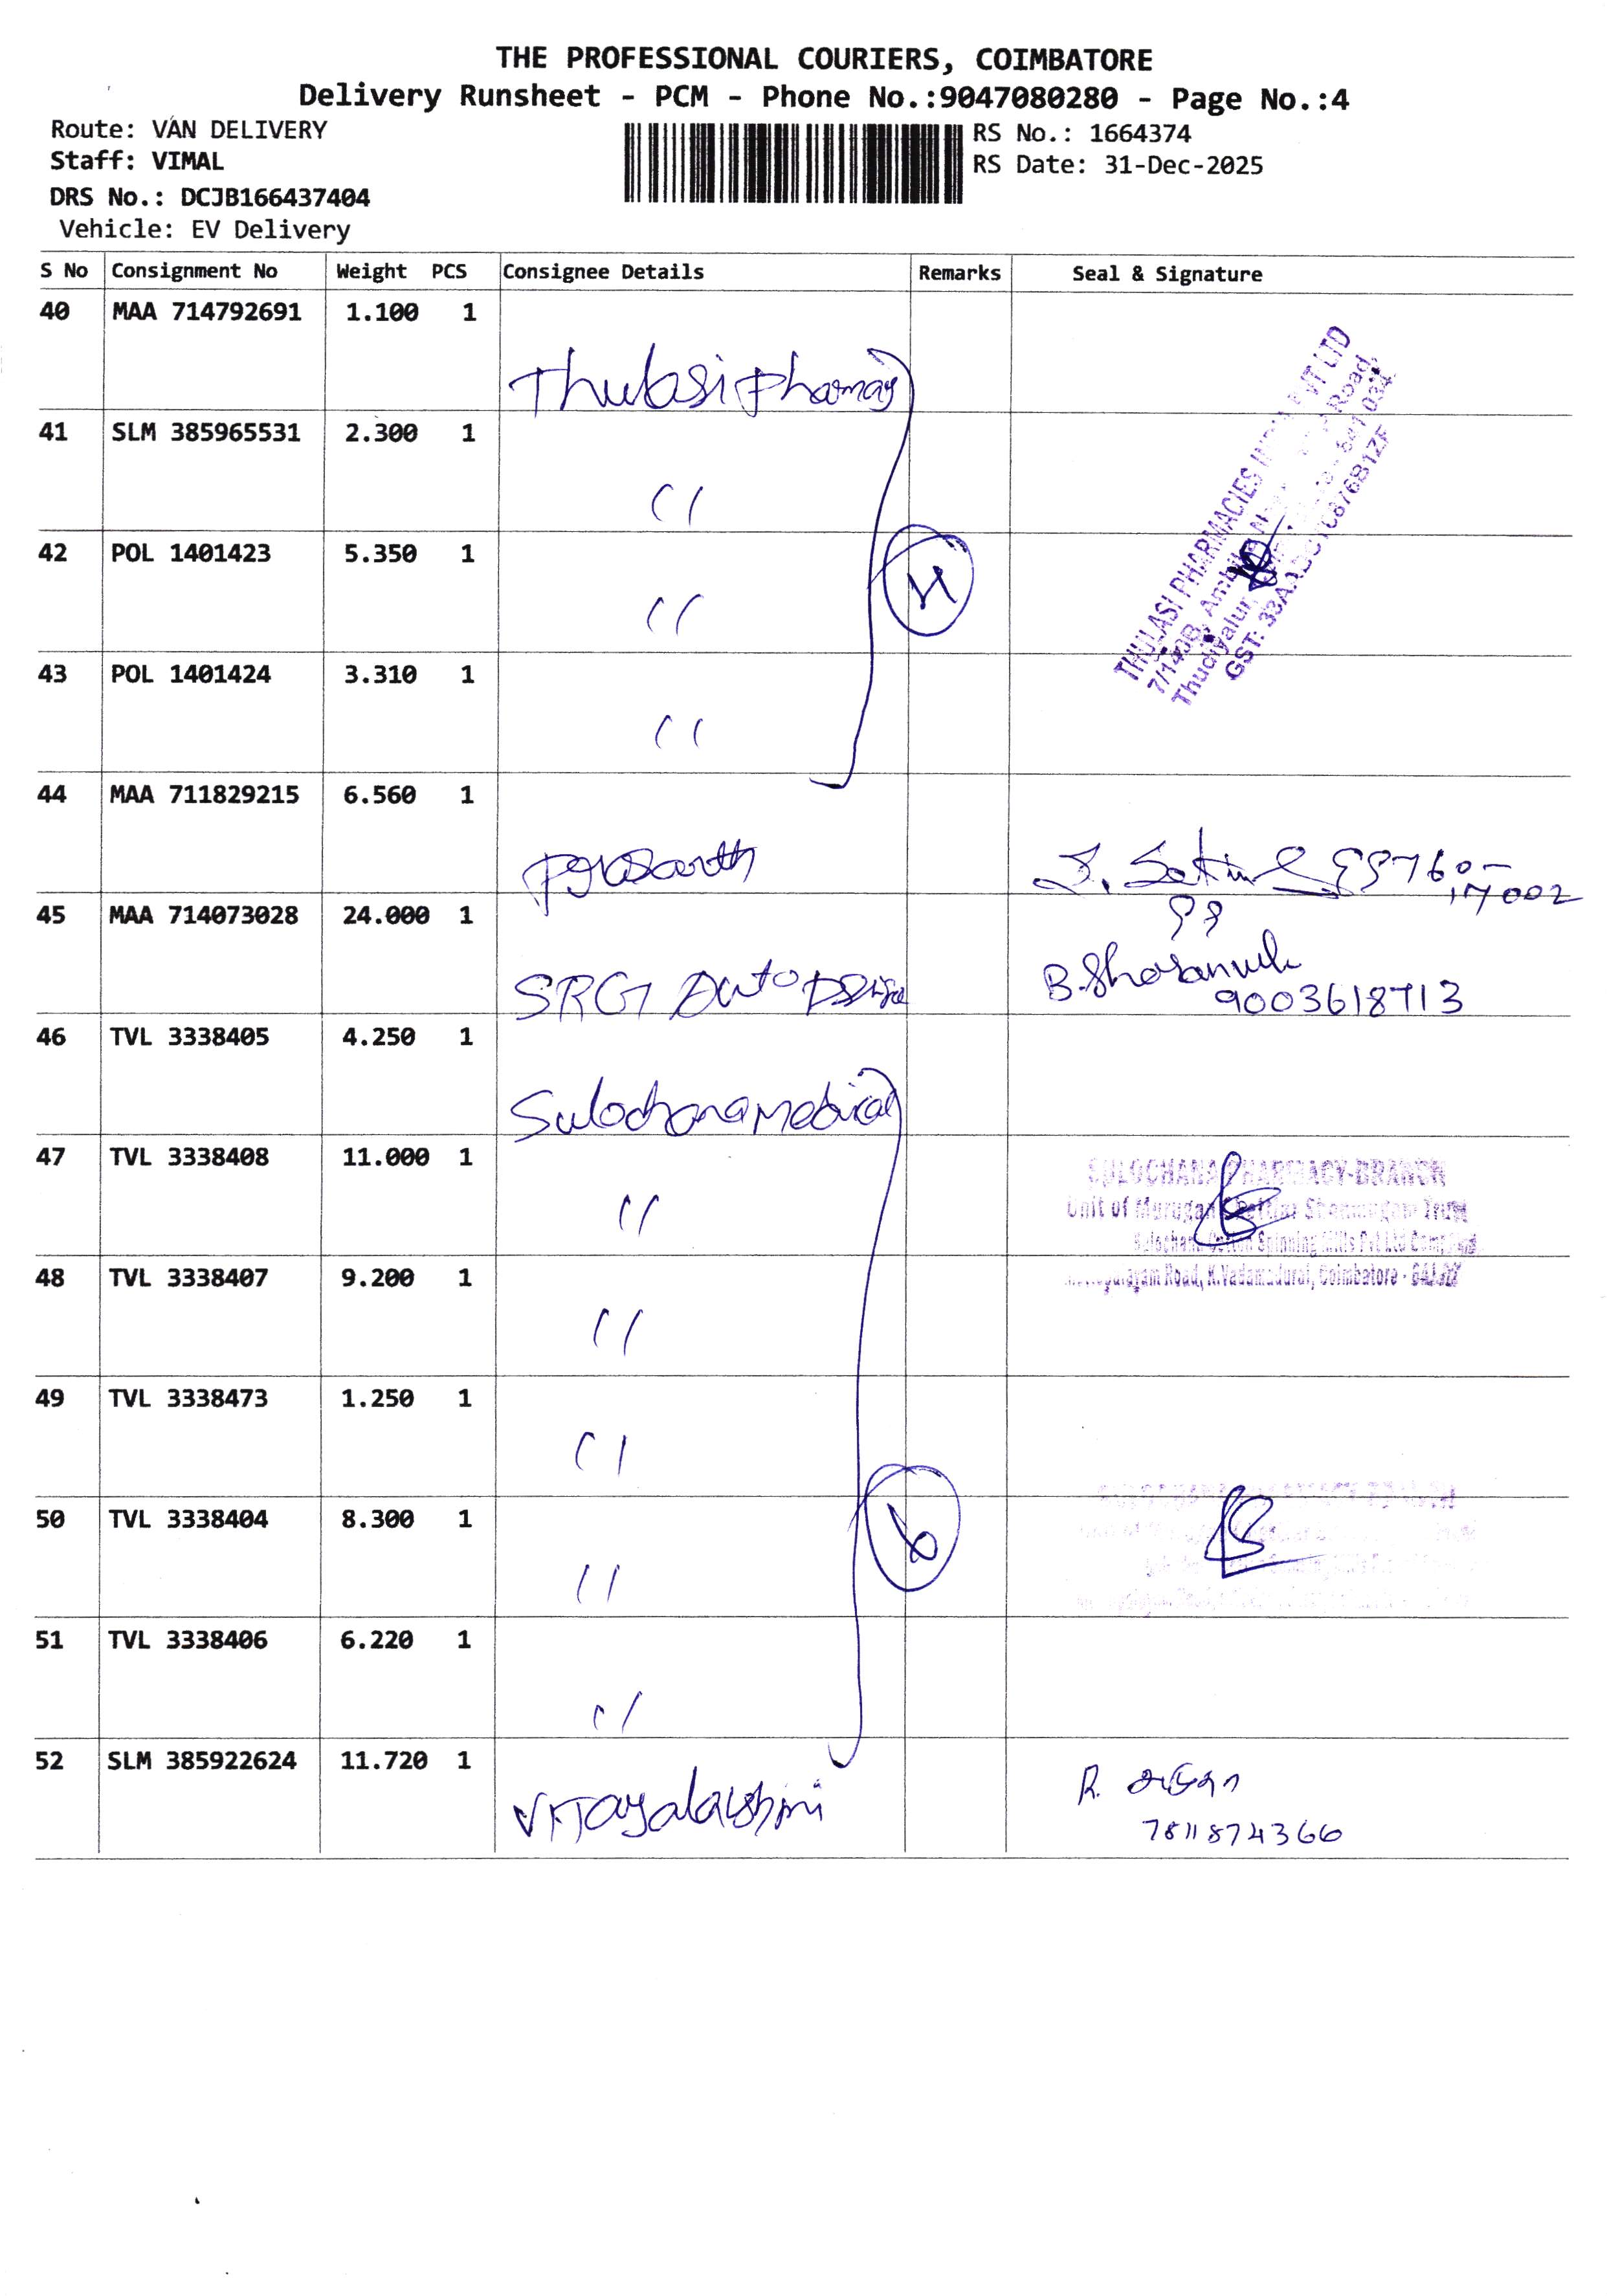 THE PROFESSIONAL COURIERS, COIMBATORE
Delivery Runsheet - PCM - Phone No.:9047080280 - Page No.:4
Route: VAN DELIVERY
RS No.: 1664374
Staff: VIMAL
RS Date: 31-Dec-2025
DRS No.: DCJB166437404
Vehicle: EV Delivery
S No Consignment No Weight PCS Consignee Details Remarks Seal & Signature
40 MAA 714792691 1.100 1
Thulasi Pharmacy
41 SLM 385965531 2.300 1
THULASI PHARMACIES PVT LTD
Road,
7/140B,
Thudiyalur,
GST:
42 POL 1401423 5.350 1
43 POL 1401424 3.310 1
44 MAA 711829215 6.560 1
Prasanth
45 MAA 714073028 24.000 1
98
SRG Auto
9003618713
46 TVL 3338405 4.250 1
Sulochana Medical
47 TVL 3338408 11.000 1
SULOCHANA PHARMACY-BRANCH
Unit of Murugan Chettiar Shanmugam Trust
Sulochana Cotton Spinning Mills Pvt Ltd
48 TVL 3338407 9.200 1
Road, K.Vadamadurai, Coimbatore -
49 TVL 3338473 1.250 1
50 TVL 3338404 8.300 1
6
51 TVL 3338406 6.220 1
52 SLM 385922624 11.720 1
Vijayalakshmi
R.
7811874366